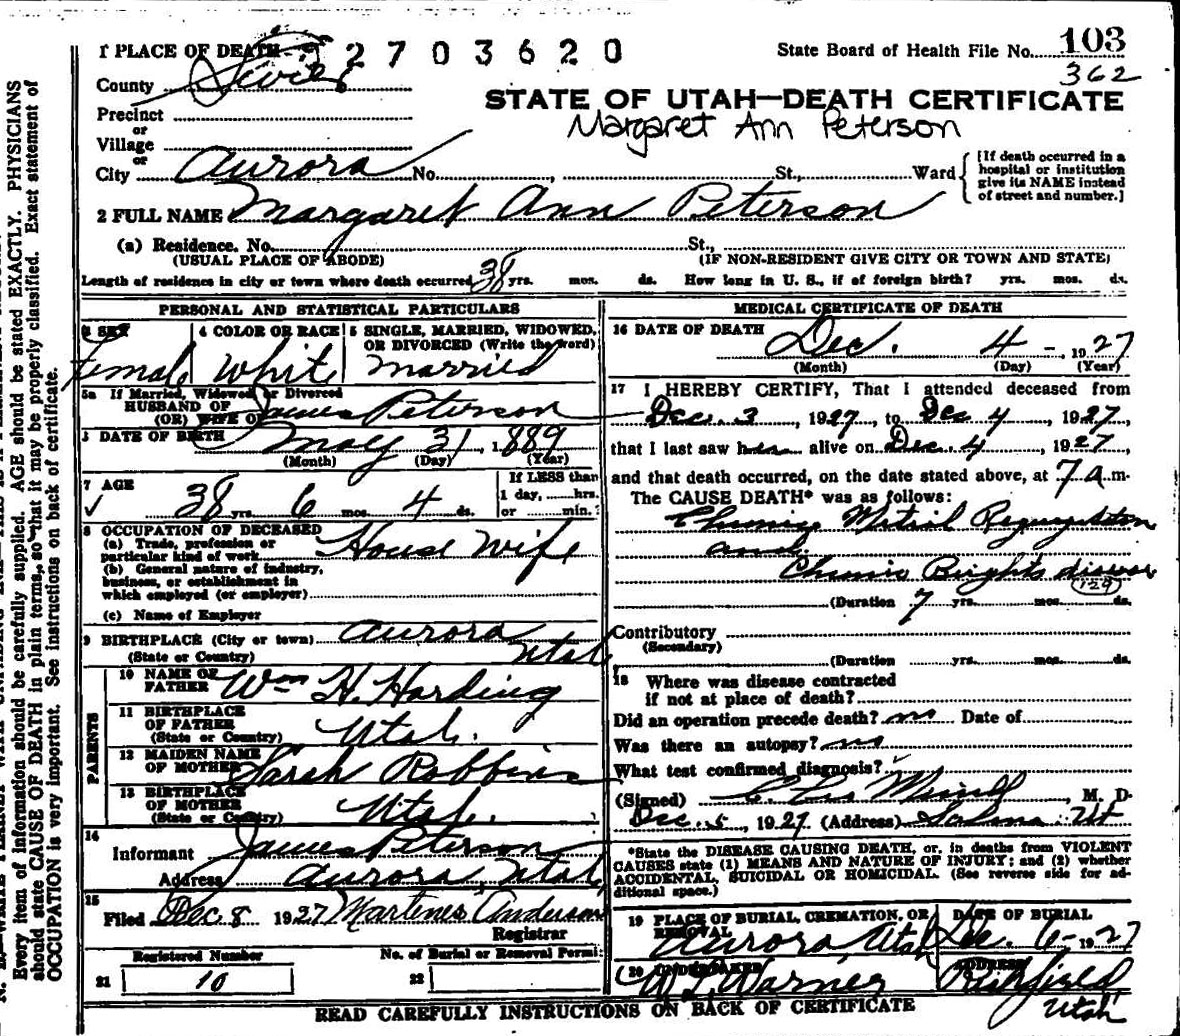 1 PLACE OF DEATH 2703620
State Board of Health File No. 103
362
County Sevier
STATE OF UTAH—DEATH CERTIFICATE
Margaret Ann Peterson
Precinct
or
Village
or
City Aurora No. , St., Ward
[If death occurred in a
hospital or institution
give its NAME instead
of street and number.]
2 FULL NAME Margaret Ann Peterson
(a) Residence. No. St.,
(USUAL PLACE OF ABODE) (IF NON-RESIDENT GIVE CITY OR TOWN AND STATE)
Length of residence in city or town where death occurred 38 yrs. mos. ds. How long in U. S., if of foreign birth? yrs. mos. ds.
PERSONAL AND STATISTICAL PARTICULARS
3 SEX 4 COLOR OR RACE 5 SINGLE, MARRIED, WIDOWED,
OR DIVORCED (Write the word)
Female White married
5a If Married, Widowed or Divorced
HUSBAND OF
(OR) WIFE OF James Peterson
DATE OF BIRTH May 31, 1889
(Month) (Day) (Year)
7 AGE 38 yrs. 6 mos. 4 ds.
If LESS than
1 day, hrs.
or min.
8 OCCUPATION OF DECEASED
(a) Trade, profession or
particular kind of work House Wife
(b) General nature of industry,
business, or establishment in
which employed (or employer)
(c) Name of Employer
9 BIRTHPLACE (City or town) Aurora
(State or Country) Utah
PARENTS
10 NAME OF
FATHER Wm H. Harding
11 BIRTHPLACE
OF FATHER
(State or Country) Utah.
12 MAIDEN NAME
OF MOTHER Sarah Robbins
13 BIRTHPLACE
OF MOTHER
(State or Country) Utah.
14
Informant James Peterson
Address Aurora, Utah
15
Filed Dec. 8 1927 Anderson
Registrar
Registered Number No. of Burial or Removal Permit
21 10 22
MEDICAL CERTIFICATE OF DEATH
16 DATE OF DEATH Dec. 4 - , 1927
(Month) (Day) (Year)
17 I HEREBY CERTIFY, That I attended deceased from
Dec. 3, 1927, to Dec 4, 1927,
that I last saw her alive on Dec. 4, 1927,
and that death occurred, on the date stated above, at 7 a.m.
The CAUSE DEATH* was as follows:
Chronic Mitral Regurgitation
and
Chronic Brights disease
129
(Duration 7 yrs. mos. ds.
Contributory
(Secondary)
(Duration yrs. mos. ds.
18 Where was disease contracted
if not at place of death?
Did an operation precede death? no Date of
Was there an autopsy? no
What test confirmed diagnosis?
(Signed) M. D.
Dec. 5, 1927 (Address) Salina Ut
*State the DISEASE CAUSING DEATH, or, in deaths from VIOLENT
CAUSES state (1) MEANS AND NATURE OF INJURY; and (2) whether
ACCIDENTAL, SUICIDAL OR HOMICIDAL. (See reverse side for ad-
ditional space.)
19 PLACE OF BURIAL, CREMATION, OR
REMOVAL
DATE OF BURIAL
Aurora Utah Dec. 6 - 1927
20 UNDERTAKER ADDRESS
Warner Richfield
Utah
READ CAREFULLY INSTRUCTIONS ON BACK OF CERTIFICATE
Every item of information should be carefully supplied. AGE should be stated EXACTLY. PHYSICIANS
should state CAUSE OF DEATH in plain terms, so that it may be properly classified. Exact statement of
OCCUPATION is very important. See instructions on back of certificate.